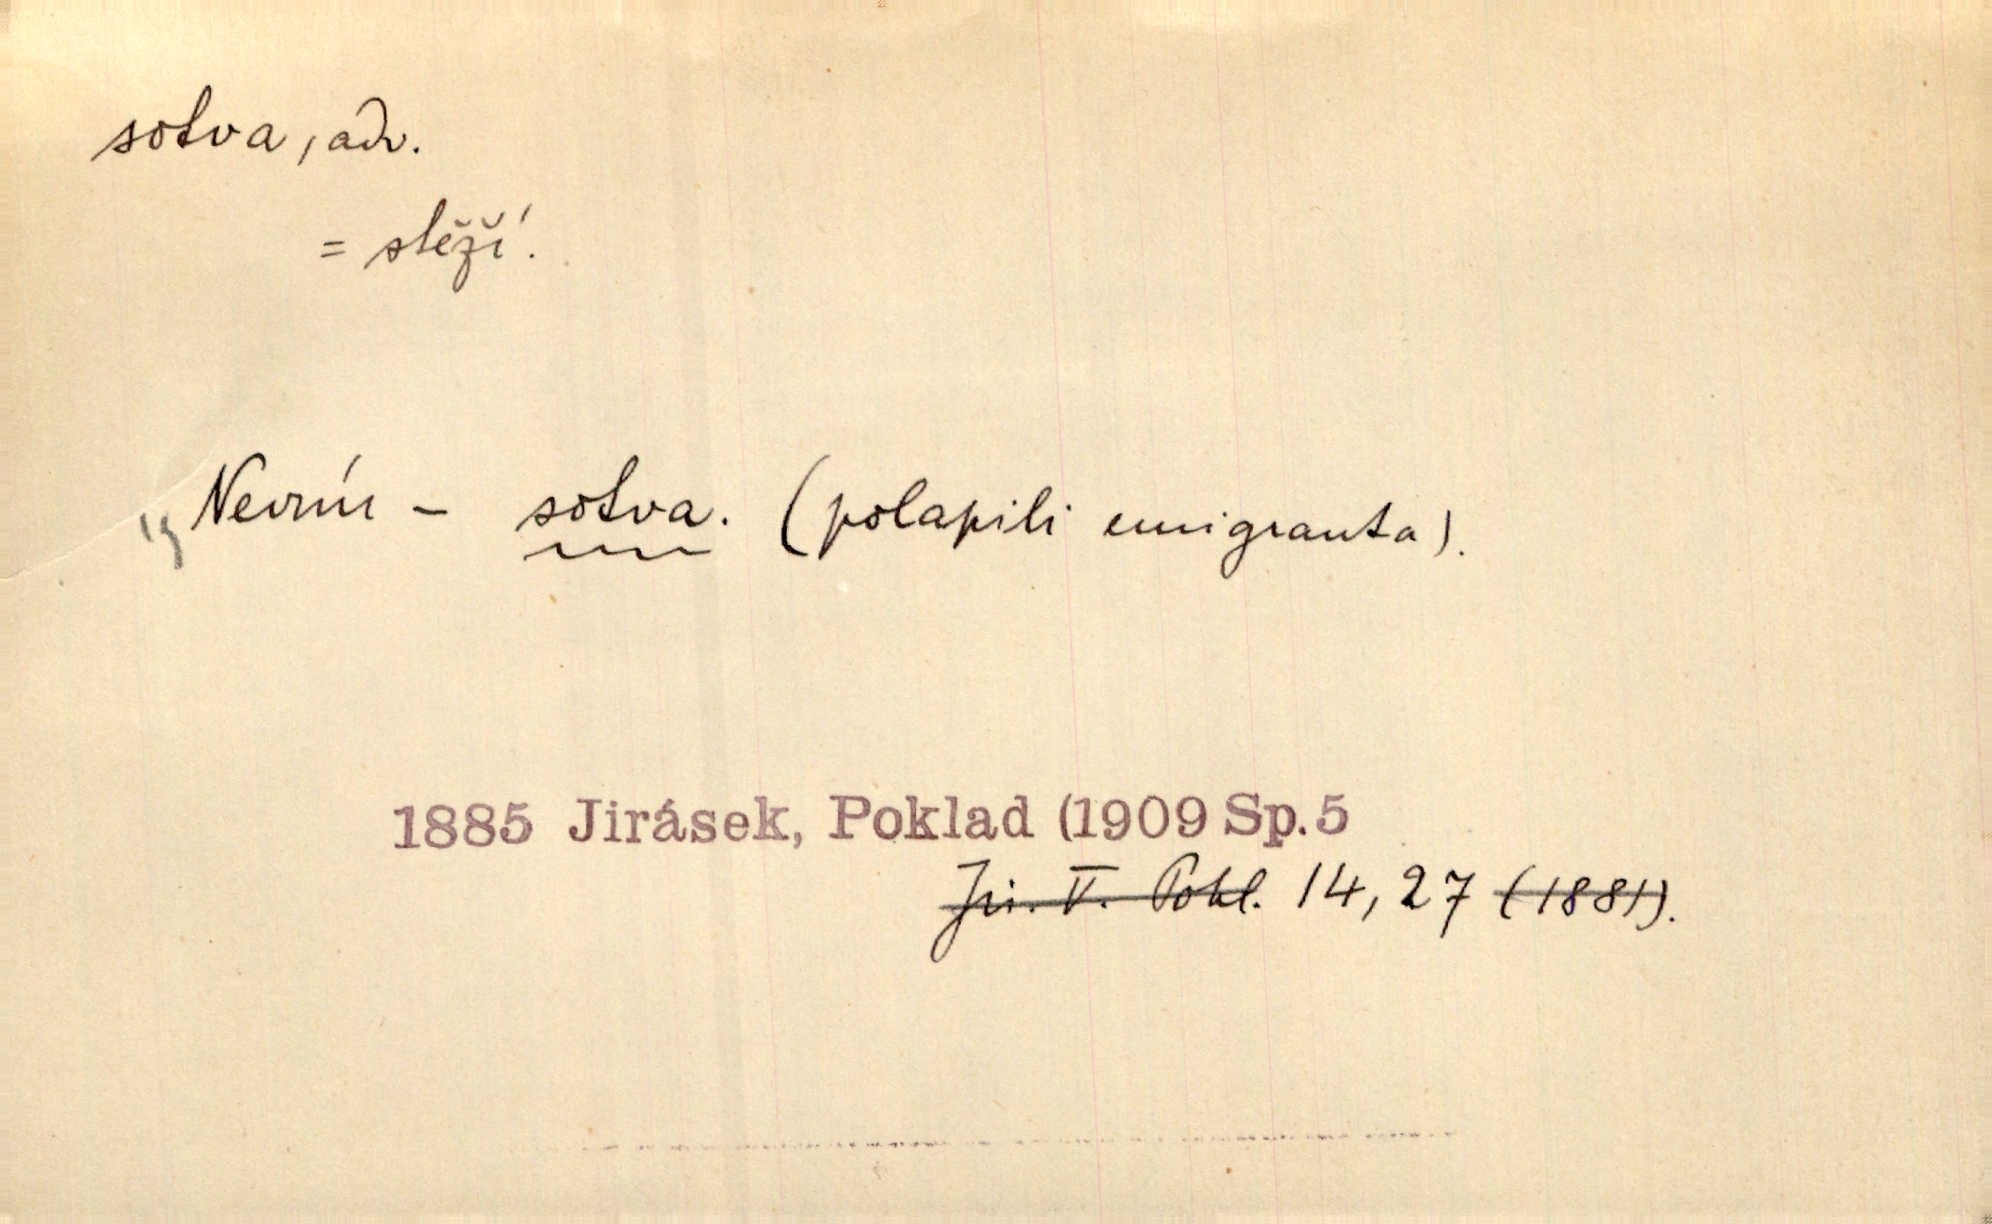 sotva, adv.
= stěží.
Nevím – sotva. (polapili emigranta).
1885 Jirásek, Poklad (1909 Sp. 5
Jir. V. Pokl. 14, 27 (1881).